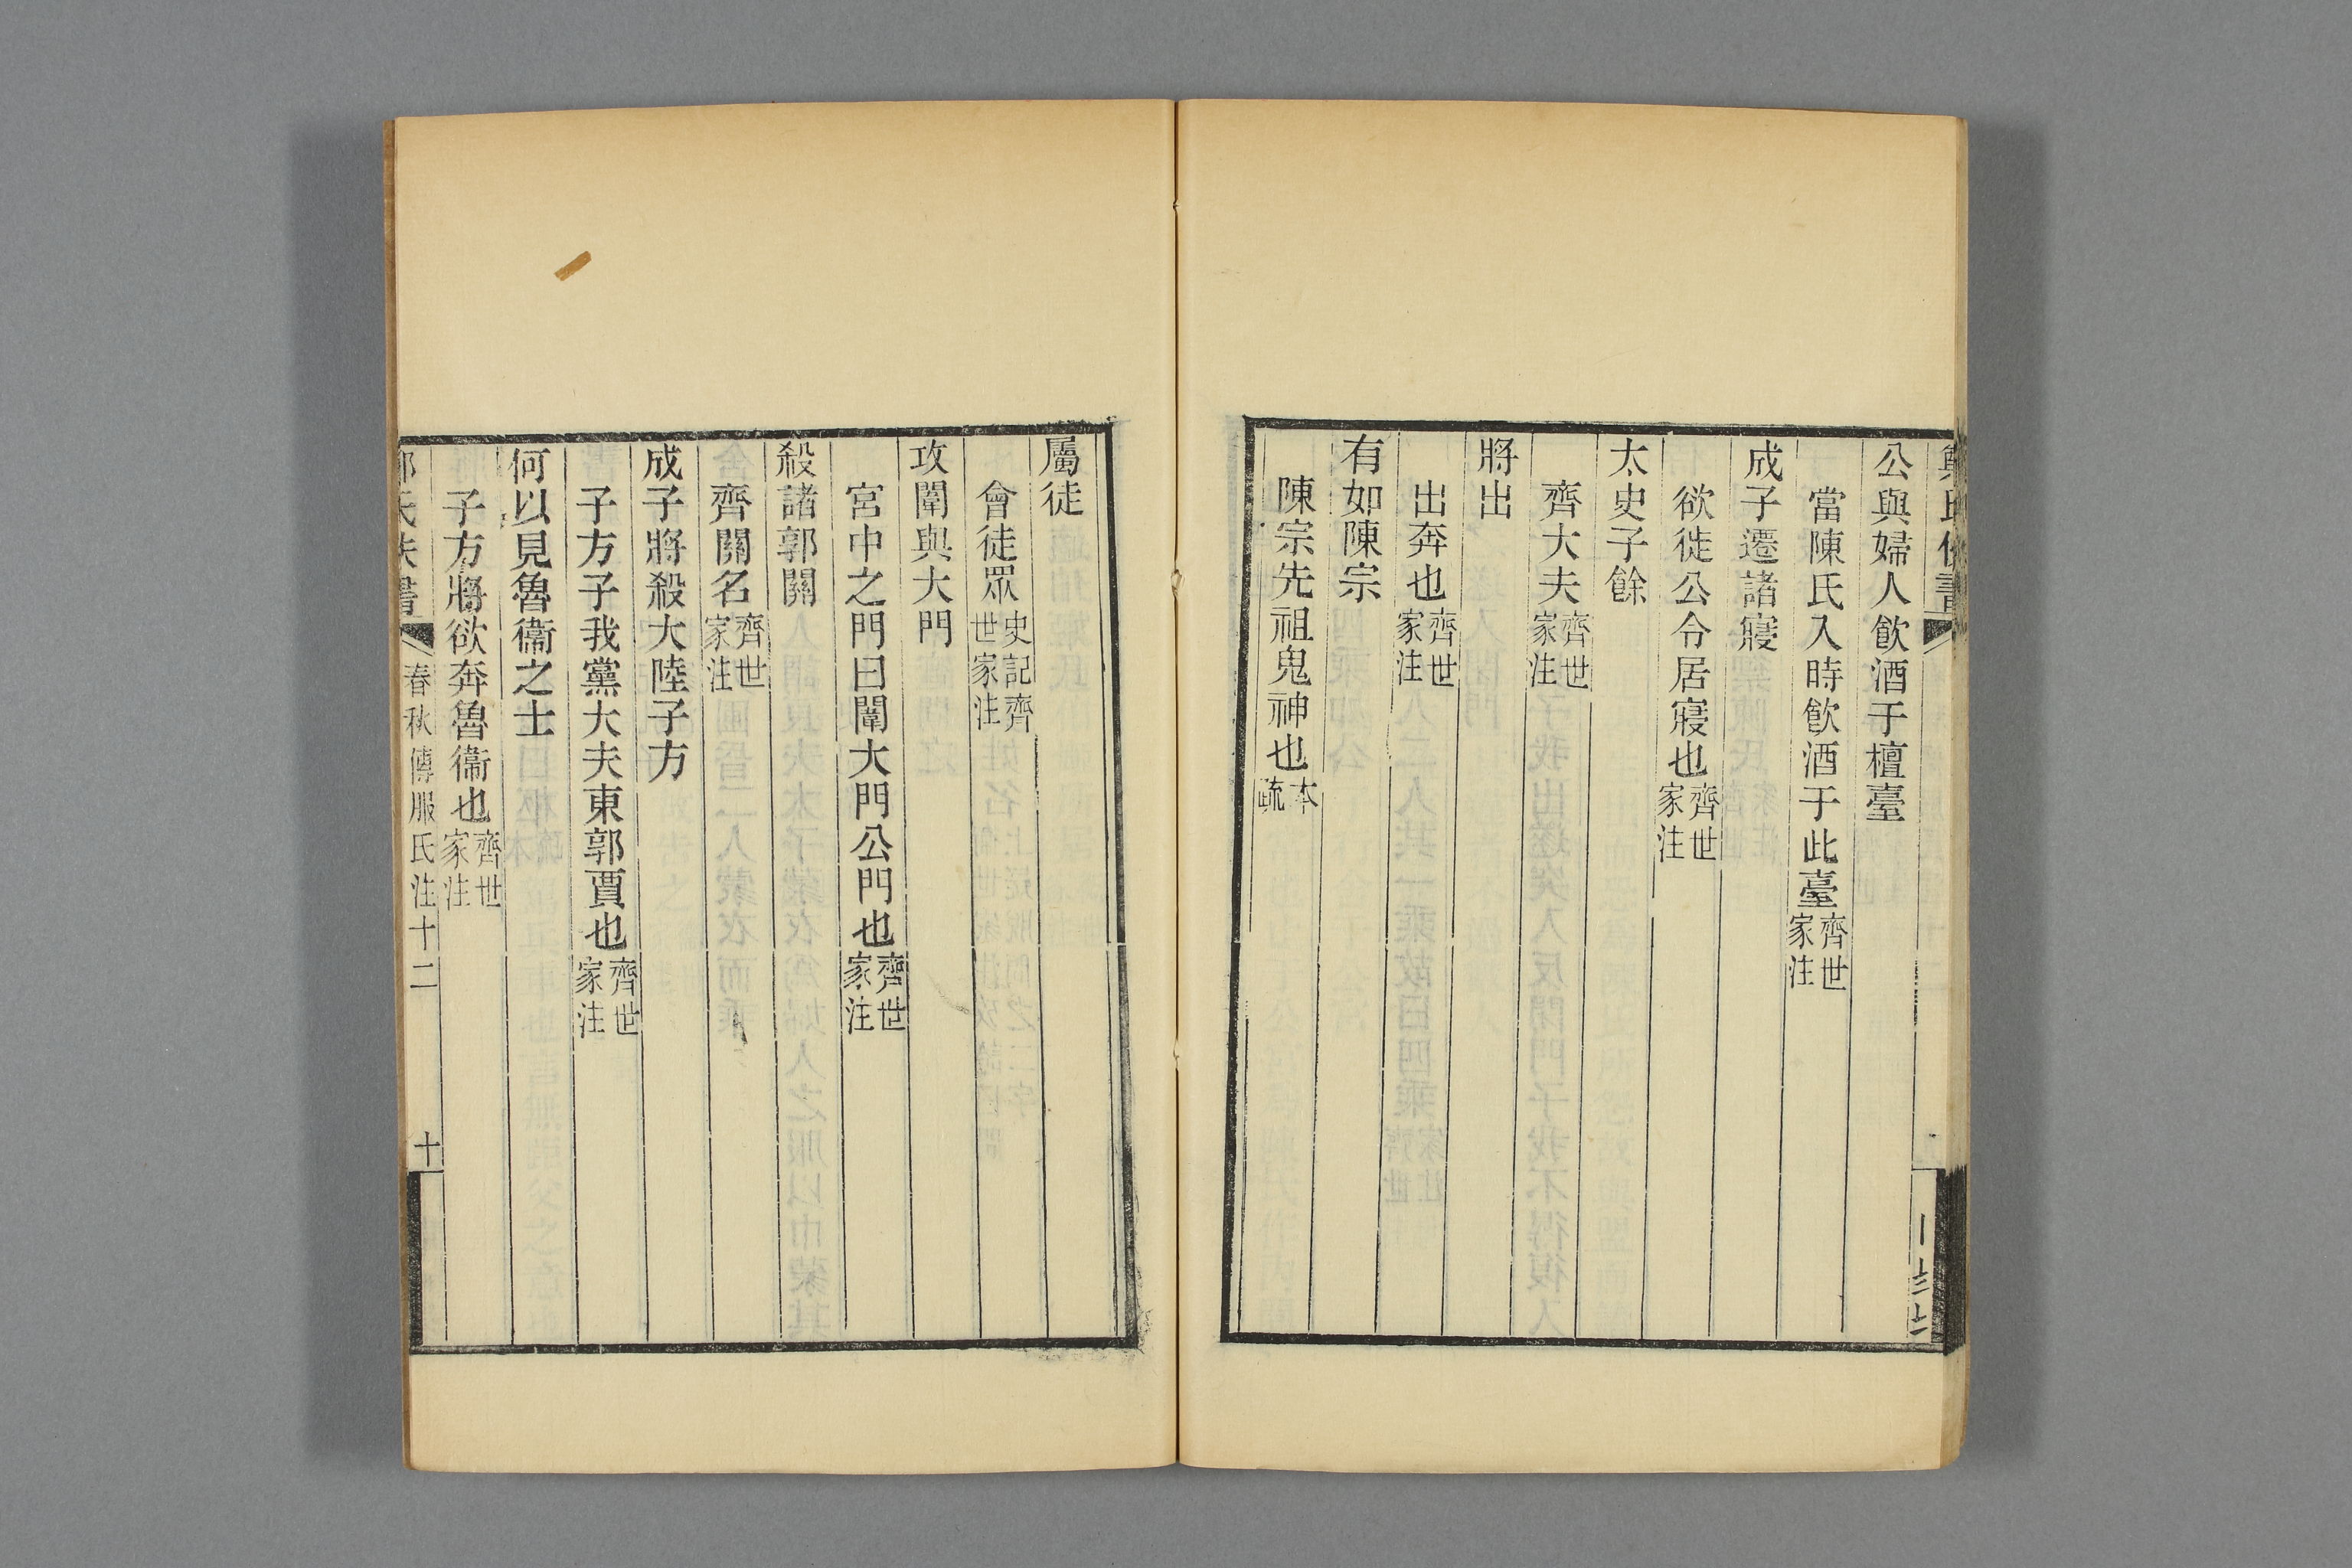 公與婦人飮酒于檀臺
當陳氏入時飮酒于此臺齊世家注
成子遷諸寢
欲徙公令居寢也齊世家注
太史子餘
齊大夫齊世家注
將出
出奔也齊世家注
有如陳宗
陳宗先祖鬼神也本疏
屬徒
會徒眾史記齊世家注
攻闈與大門
宮中之門曰闈大門公門也齊世家注
殺諸郭關
齊關名齊世家注
成子將殺大陸子方
子方子我黨大夫東郭賈也齊世家注
何以見魯衞之士
子方將欲奔魯衞也齊世家注
氏佚書 春秋傳服氏注十二 十